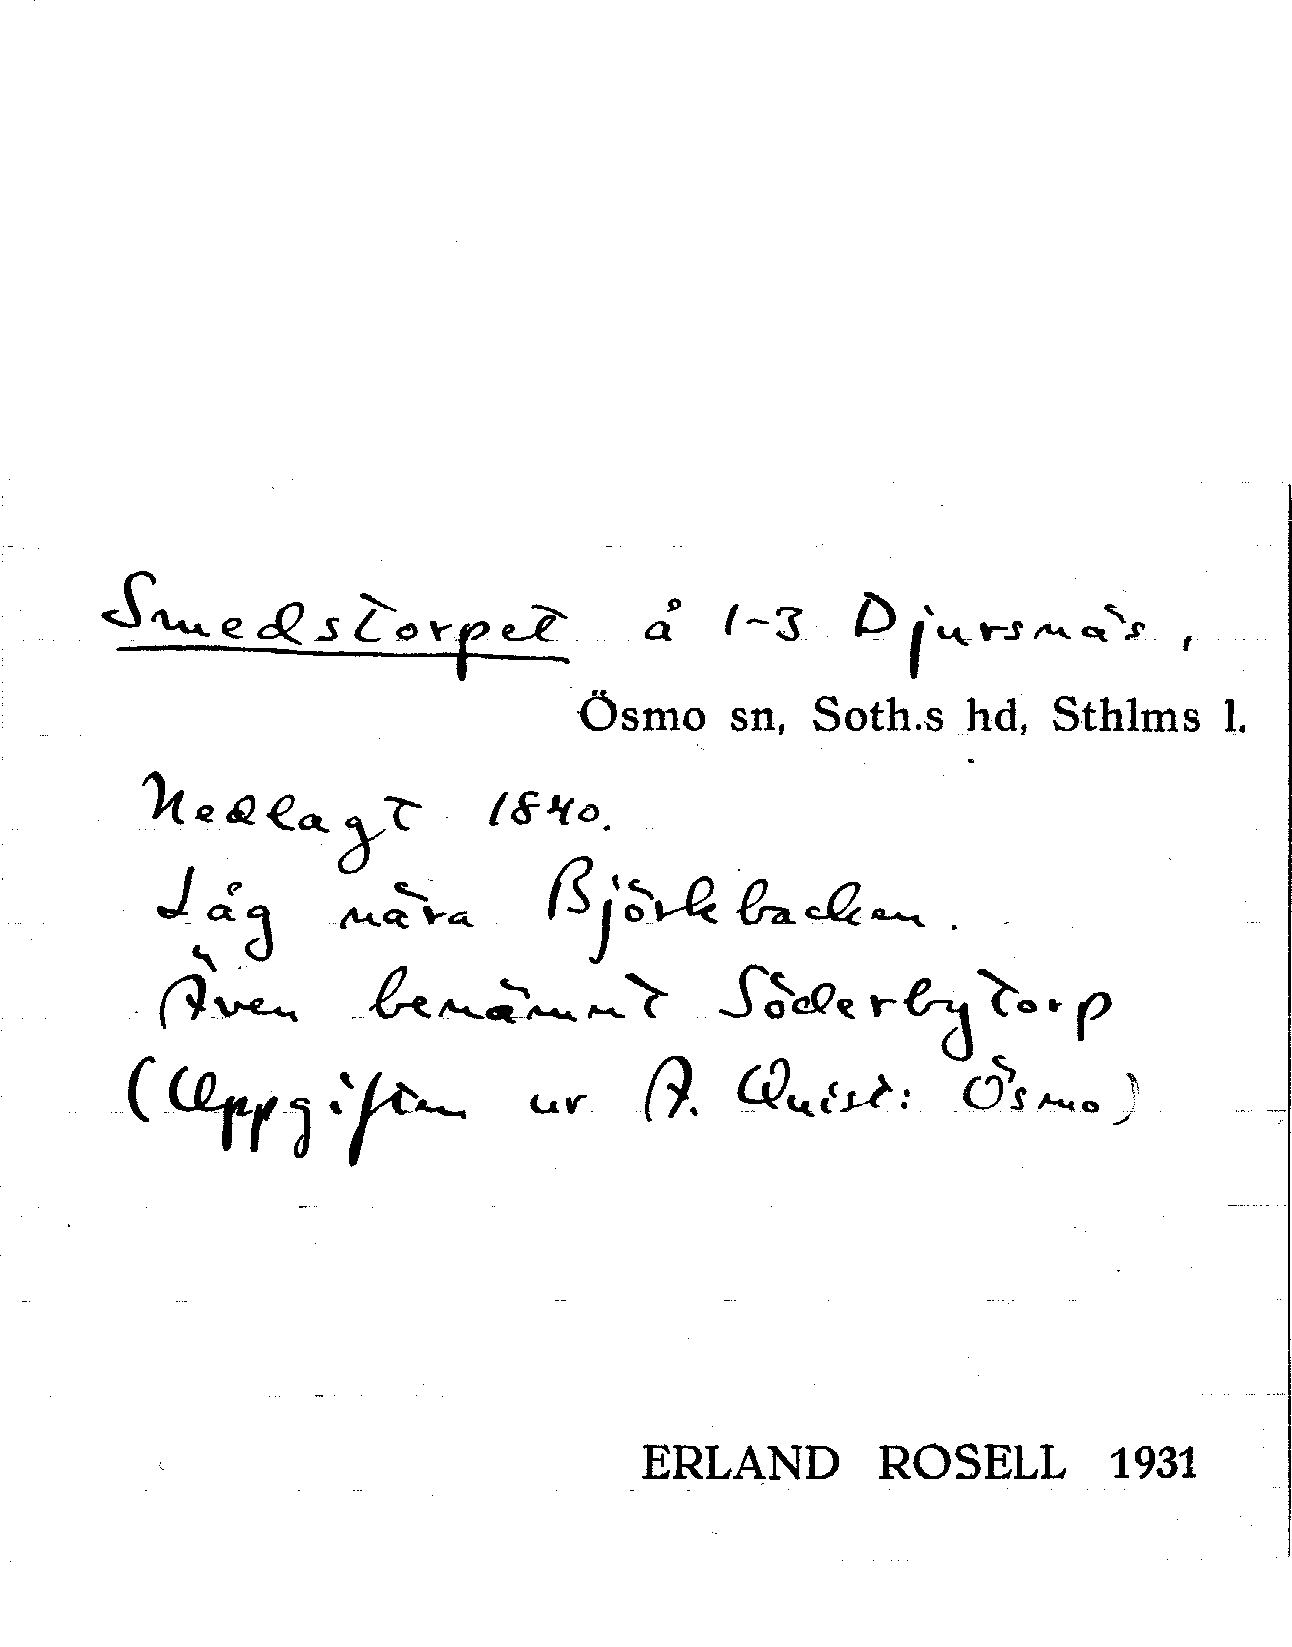 Smedstorpet å 1-3 Djursnäs,
Ösmo sn, Soth.s hd, Sthlms l.
Nedlagt 1840.
Låg nära Björkbacken.
Även benämnt Söderbytorp
(Uppgiften ur A. Quist: Ösmo)
ERLAND ROSELL 1931